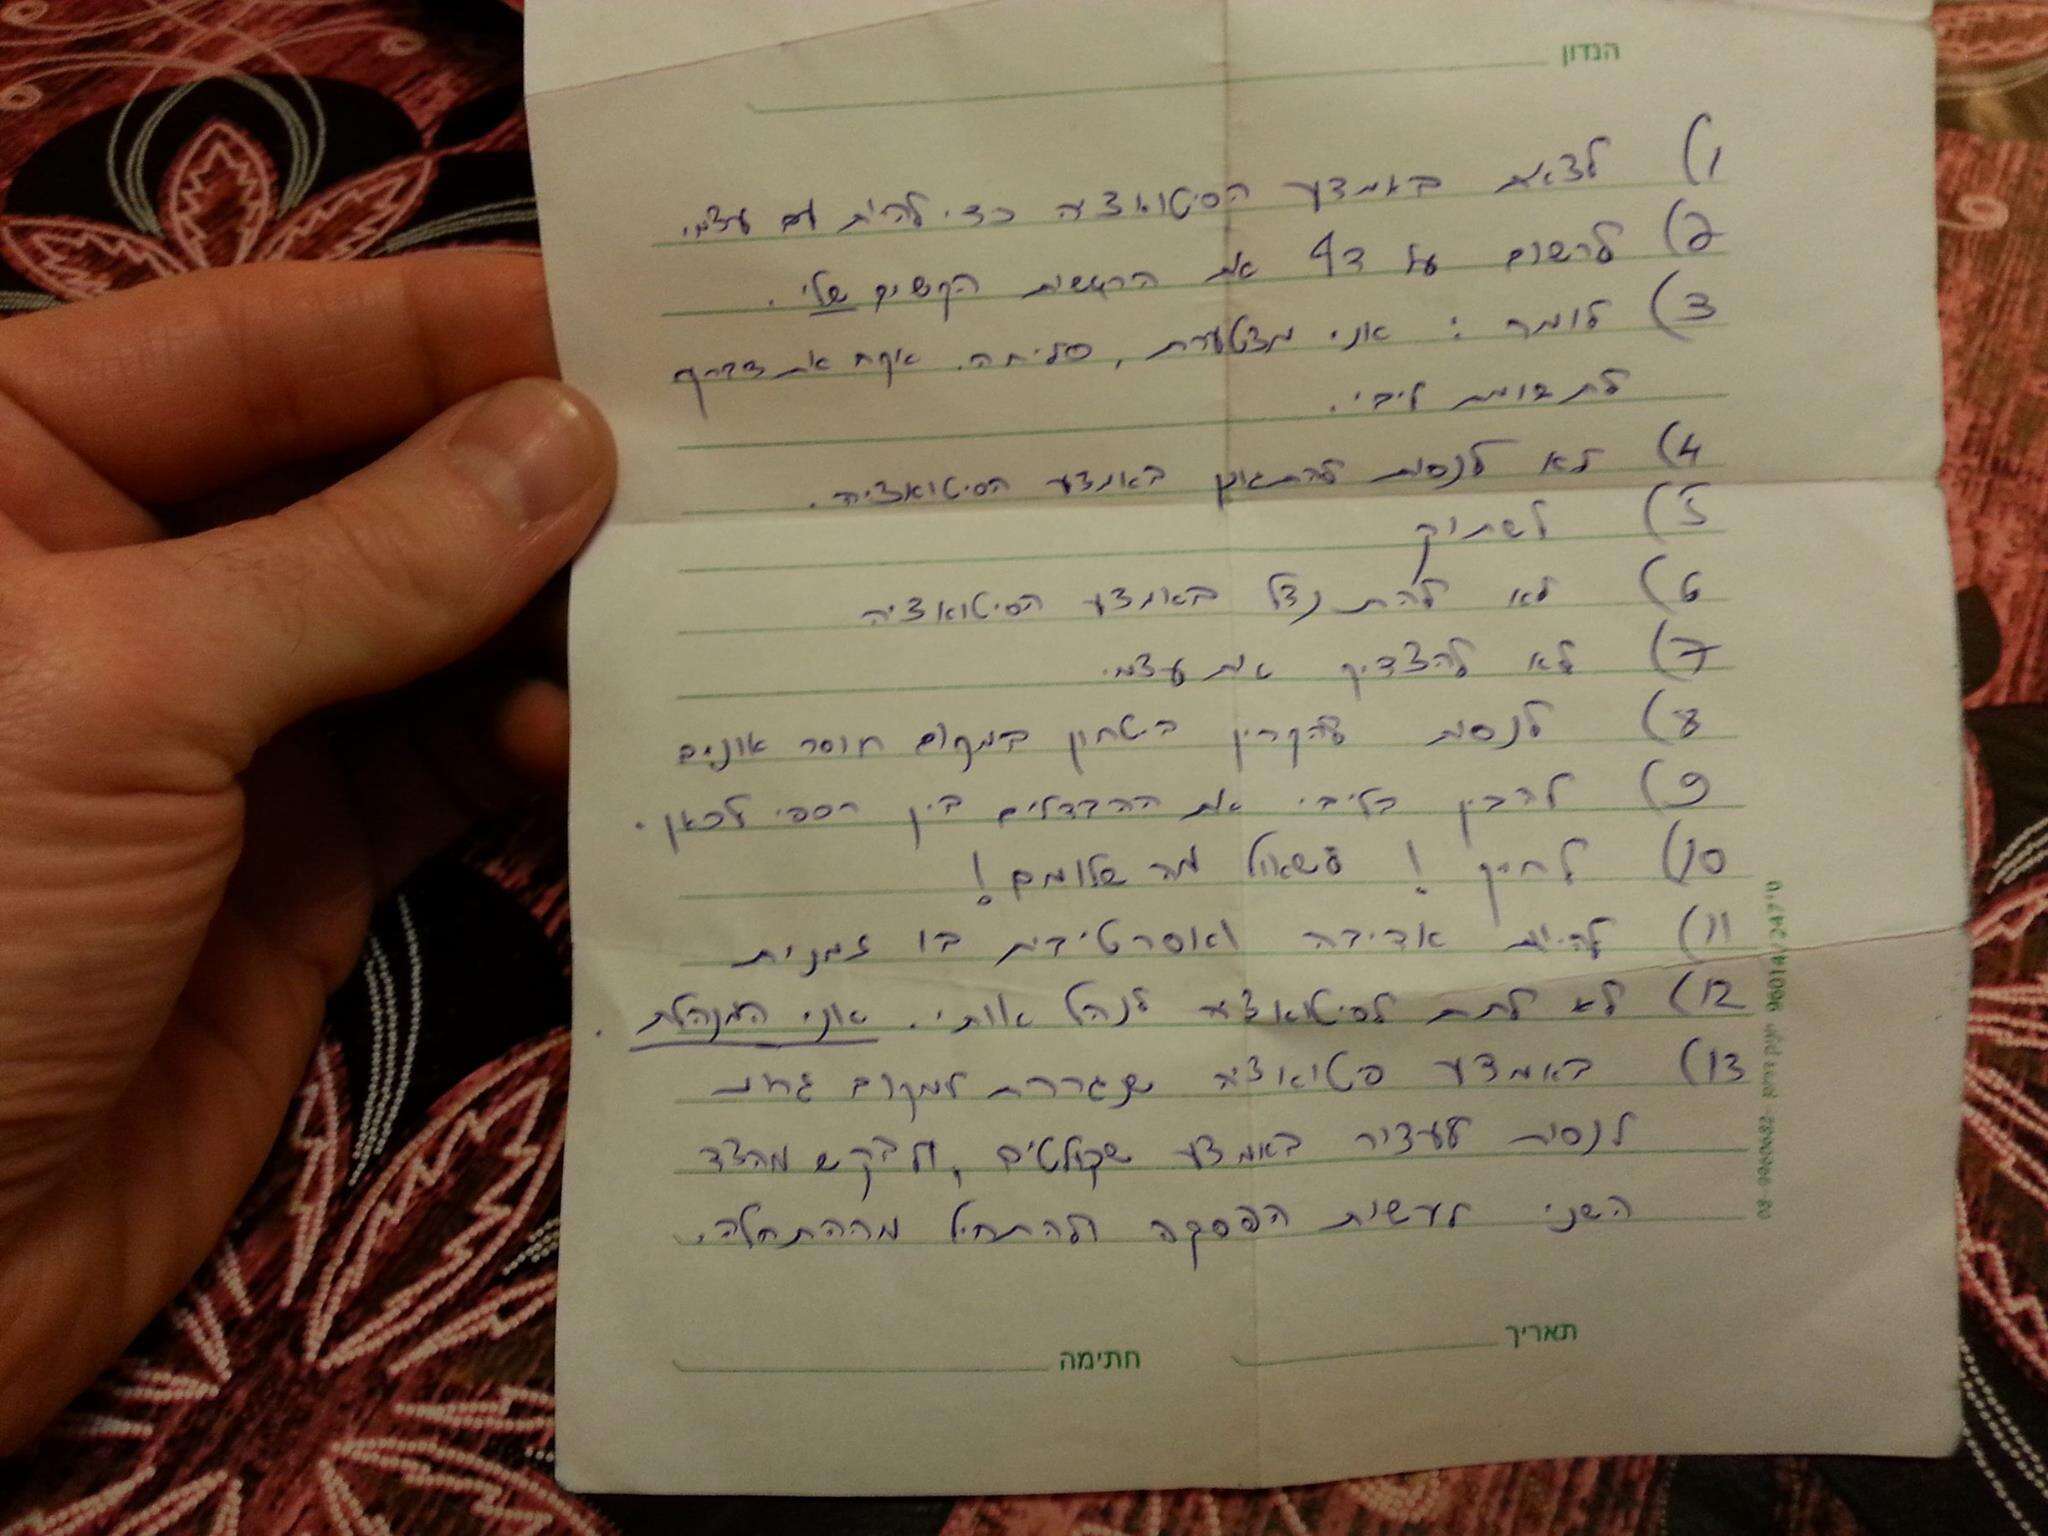 הנדון
1) לצאת באמצע הסיטואציה כדי להיות עם עצמי.
2) לרשום על דף את הרגשות הקשים שלי.
3) לומר: אני מצטערת, סליחה. אקח את דבריך
לתשומת ליבי.
4) לא לנסות להתגונן באמצע הסיטואציה.
5) לשתוק
6) לא להתנצל באמצע הסיטואציה
7) לא להצדיק את עצמי.
8) לנסות להקרין ביטחון במקום חוסר אונים
9) להבין בליבי את ההבדלים בין לכאן.
10) לחייך! לשאול מה שלומם!
11) להיות אדיבה ואסרטיבית בו זמנית
12) לא לתת לסיטואציה לנהל אותי. אני המנהלת.
13) באמצע סיטואציה שנגררת למקום
לנסות לעצור באמצע שקולטים, ולבקש מהצד
השני לעשות הפסקה ולהתחיל מההתחלה.
תאריך
חתימה